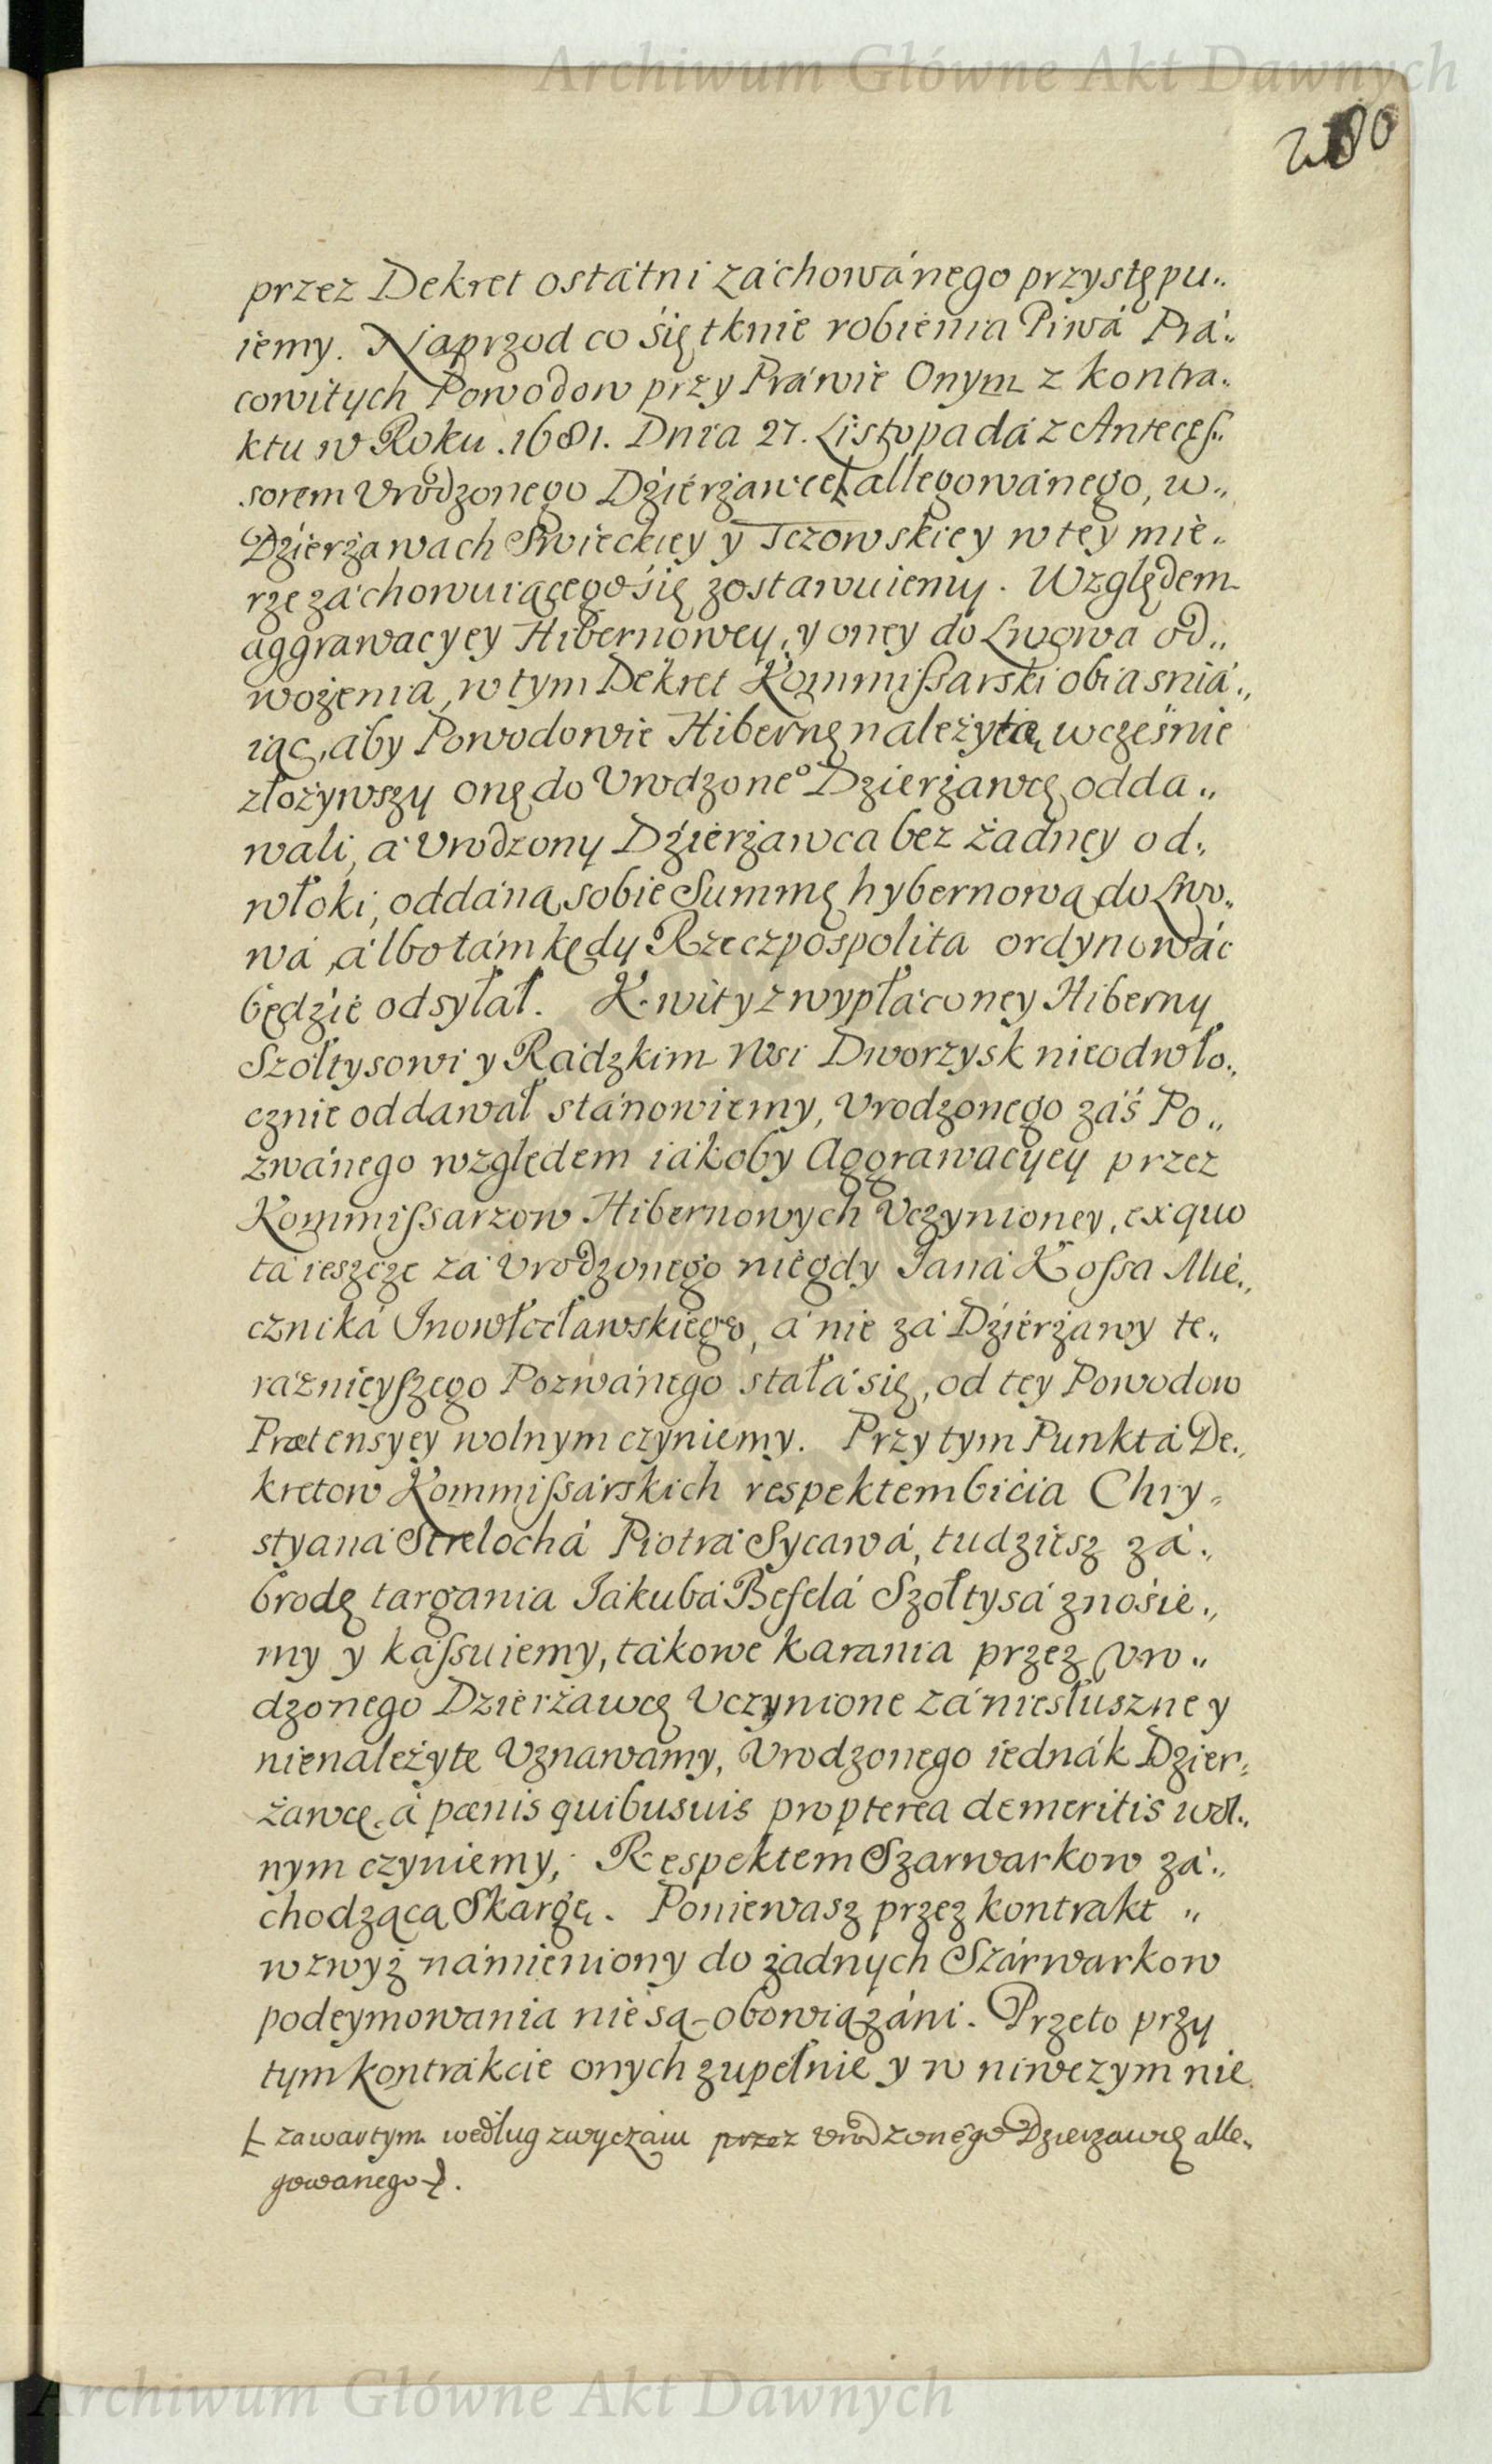 Archiwum Główne Akt Dawnych
przez Dekret ostátni záchowánego przystępu„
iemy. Naprzod co się tknie robienia Piwá Prá„
cowitych Powodow przy Práwie Onym z kontra„
ktu w Roku .1681. Dnia 27. Listopadá z Anteceſ„
sorem Vrodzonego Dzierżawcę Ł allegowánego, w„
Dzierżawach Swieckiey y Tczowskiey w tey mie„
rze záchowuiącego się zostawuiemy. Względem
aggrawacyey Hibernowey, y oney do Lwowa od„
wożenia, w tym Dekret Kommiſsarski obiasniá„
iąc, aby Powodowie Hibernę należytą wcześnie
złożywszy onę do Vrodzone⁰ Dzierżawcę odda„
wali, á Vrodzony Dzierżawca bez żadney od„
włoki, oddáną sobie Summę hybernową do Lwo„
wá, álbo tám kędy Rzeczpospolita ordynowáć
będzie odsyłał. Kwity z wypłáconey Hiberny
Szołtysowi y Rádzkim Wsi Dworzysk nieodwło„
cznie oddawał stánowiemy, Vrodzonego záś Po„
zwánego względem iákoby Aggrawacyey przez
Kommiſsarzow Hibernowych Vczynioney, ex quo
tá ieszcze zá Vrodzonego niegdy Janá Koſsa Mie„
czniká Inowłocławskiego, á nie zá Dzierżawy te„
ráznieyſzego Pozwánego stałá się, od tey Powodow
Prætensyey wolnym czyniemy. Przy tym Punktá De„
kretow Kommiſsárskich respektem bicia Chry„
styaná Strelochá Piotrá Sycawá, tudziesz zá„
brodę targania Jákubá Beſelá Szołtysá znosie„
my y kaſsuiemy, tákowe karania przez Vro„
dzonego Dzierżawcę Vczynione zá niesłuszne y
nienależyte Vznawamy, Vrodzonego iednák Dzier„
żawcę á pænis quibusuis propterea demeritis wol„
nym czyniemy, Respektem Szarwarkow zá„
chodzącą Skargę. Poniewasz przez kontrakt „
wzwyż námieniony do żadnych Szárwarkow
podeymowania nie są obowiązáni. Przeto przy
tym kontrákcie onych zupełnie y w niwczym nie
Ł zawartym według zwyczaiu przez Vrodzonego Dzierzawcę alle„
gowanego.
Archiwum Główne Akt Dawnych